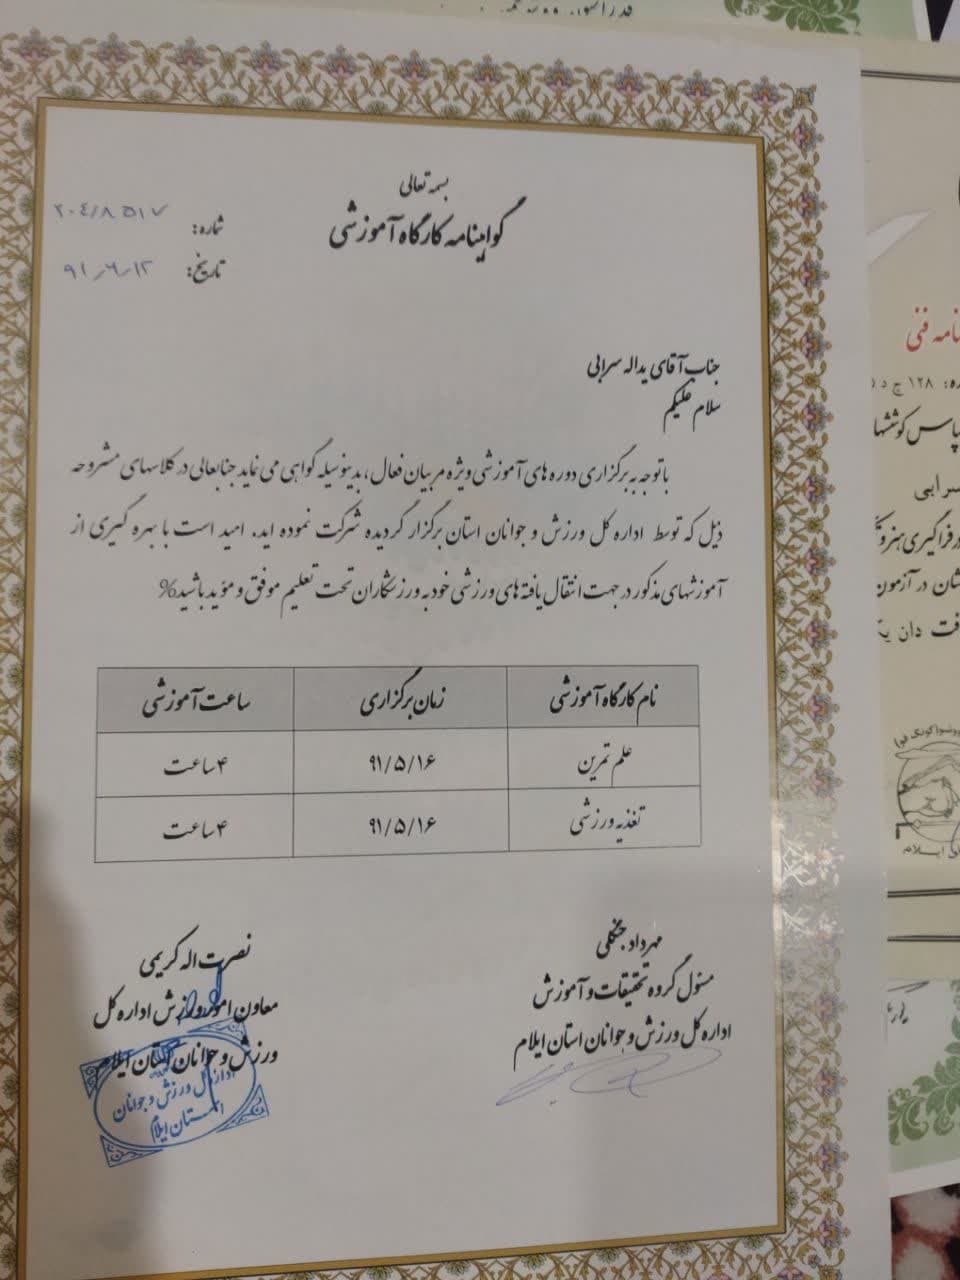 بسمه تعالی
گواهینامه کارگاه آموزشی
شماره: ۲۰٤/۸۵۱۷
تاریخ: ۹۱/۶/۱۲
جناب آقای یداله سرابی
سلام علیکم
باتوجه به برگزاری دوره های آموزشی ویژه مربیان فعال، بدینوسیله گواهی می نماید جنابعالی در کلاسهای مشروحه
ذیل که توسط اداره کل ورزش و جوانان استان برگزار گردیده شرکت نموده اید. امید است با بهره گیری از
آموزشهای مذکور در جهت انتقال یافته های ورزشی خود به ورزشکاران تحت تعلیم موفق و مؤید باشید%
نام کارگاه آموزشی زمان برگزاری ساعت آموزشی
علم تمرین ۹۱/۵/۱۶ ۴ساعت
تغذیه ورزشی ۹۱/۵/۱۶ ۴ساعت
مهرداد جنگلی
مسئول گروه تحقیقات و آموزش
اداره کل ورزش و جوانان استان ایلام
نصرت اله کریمی
معاون امور ورزش اداره کل
ورزش و جوانان استان ایلام
اداره کل ورزش و جوانان
استان ایلام
نامه فنی
۱۲۸ ج د
سرابی
فراگیری
در آزمون
دان